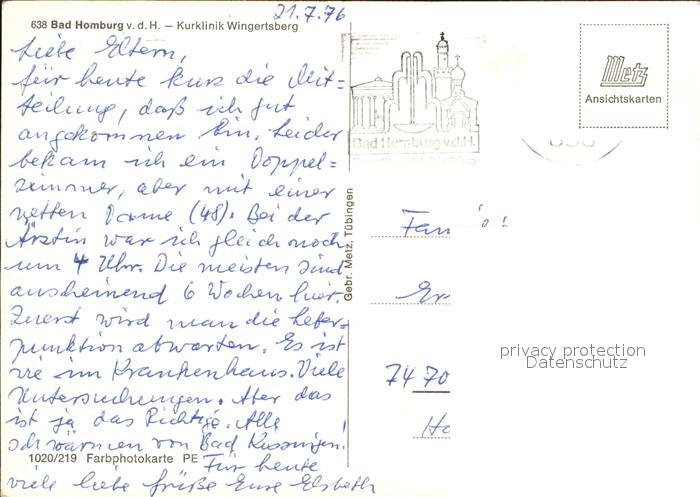 21.7.76
638 Bad Homburg v. d. H. – Kurklinik Wingertsberg
Liebe Eltern,
für heute kurz die Mit=
teilung, daß ich gut
angekommen bin. Leider
bekam ich ein Doppel=
zimmer, aber mit einer
netten Dame (48). Bei der
Ärztin war ich gleich noch
um 4 Uhr. Die meisten sind
anscheinend 6 Wochen hier.
Zuerst wird man die Leber=
punktion abwarten. Es ist
wie im Krankenhaus. Viele
Untersuchungen. Aber das
ist ja das Richtige. Alle
schwärmen von Bad Kissingen!
1020/219 Farbphotokarte PE
Für heute
viele liebe Grüße Eure Elsbeth
Gebr. Metz, Tübingen
Bad Homburg v.d.H.
Metz
Ansichtskarten
Fam
7470
privacy protection
Datenschutz